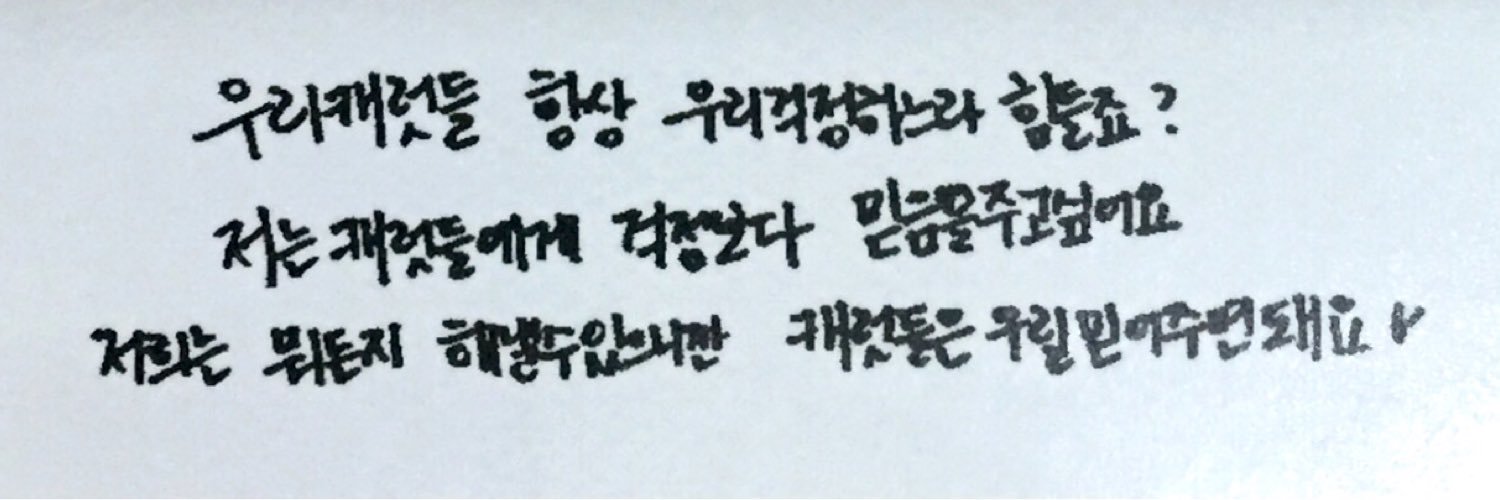 우리캐럿들 항상 우리걱정하느라 힘들죠?
저는 캐럿들에게 걱정보다 믿음을주고싶어요
저희는 뭐든지 해낼수있으니깐 캐럿들은 우릴믿어주면돼요♥